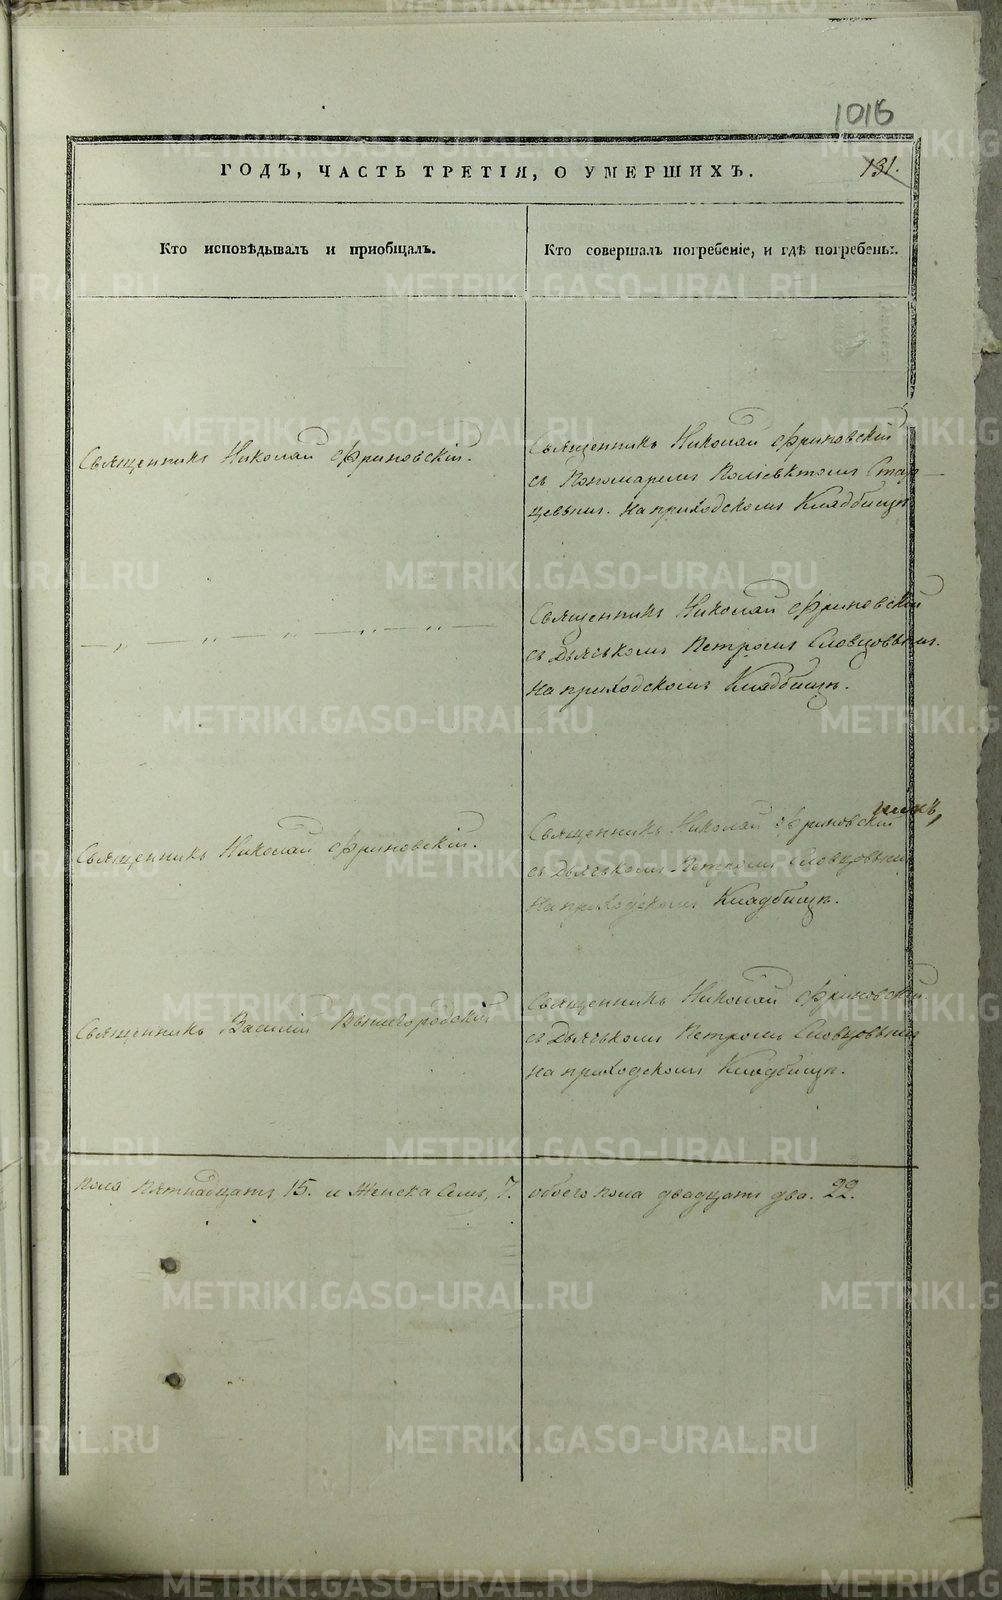 1016
ГОДЪ, ЧАСТЬ ТРЕТІЯ, О УМЕРШИХЪ.
131.
Кто исповѣдывалъ и приобщалъ.
Кто совершалъ погребеніе, и гдѣ погребены.
Священникъ Николай Фриновскій.
Священникъ Николай Фриновскій
съ Пономаремъ Поліевктомъ Стар-
цевымъ. На приходскомъ Кладбищѣ
— „ — „ — „ — „ — „ —
Священникъ Николай Фриновскій
съ Дьячкомъ Петромъ Словцовымъ.
На приходскомъ Кладбищѣ.
Священникъ Николай Фриновскій.
Священникъ Николай Фриновскій
съ Дьячкомъ Петромъ Словцовымъ
На приходскомъ Кладбищѣ.
Священникъ Василій Вышегородскій
Священникъ Николай Фриновскій
съ Дьячкомъ Петромъ Словцовымъ
на приходскомъ Кладбищѣ.
пола пятнадцать 15. и Женска Семь, 7. обоего пола двадцать два. 22.
METRIKI.GASO-URAL.RU